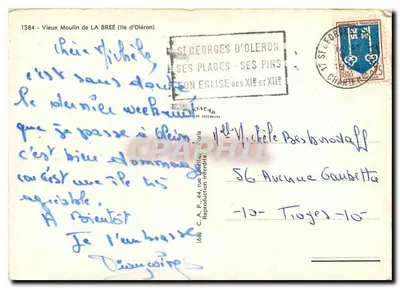 1584 - Vieux Moulin de LA BREE (Ile d'Oléron)
Chère Michèle,
c'est sans doute
le dernier weekend
que je passe à
c'est bien dommage
car c'est une île très
agréable.
A Bientôt
Je t'embrasse
Françoise
ST GEORGES D'OLERON
SES PLAGES - SES PINS
SON EGLISE DES XIe ET XIIe
17 ST GEORGES
REPUBLIQUE FRANCAISE
Melle Michèle
56 Avenue Gambetta
-10- Troyes -10-
C. A. P., 44, rue
Paris
Reproduction interdite
CPHRIC